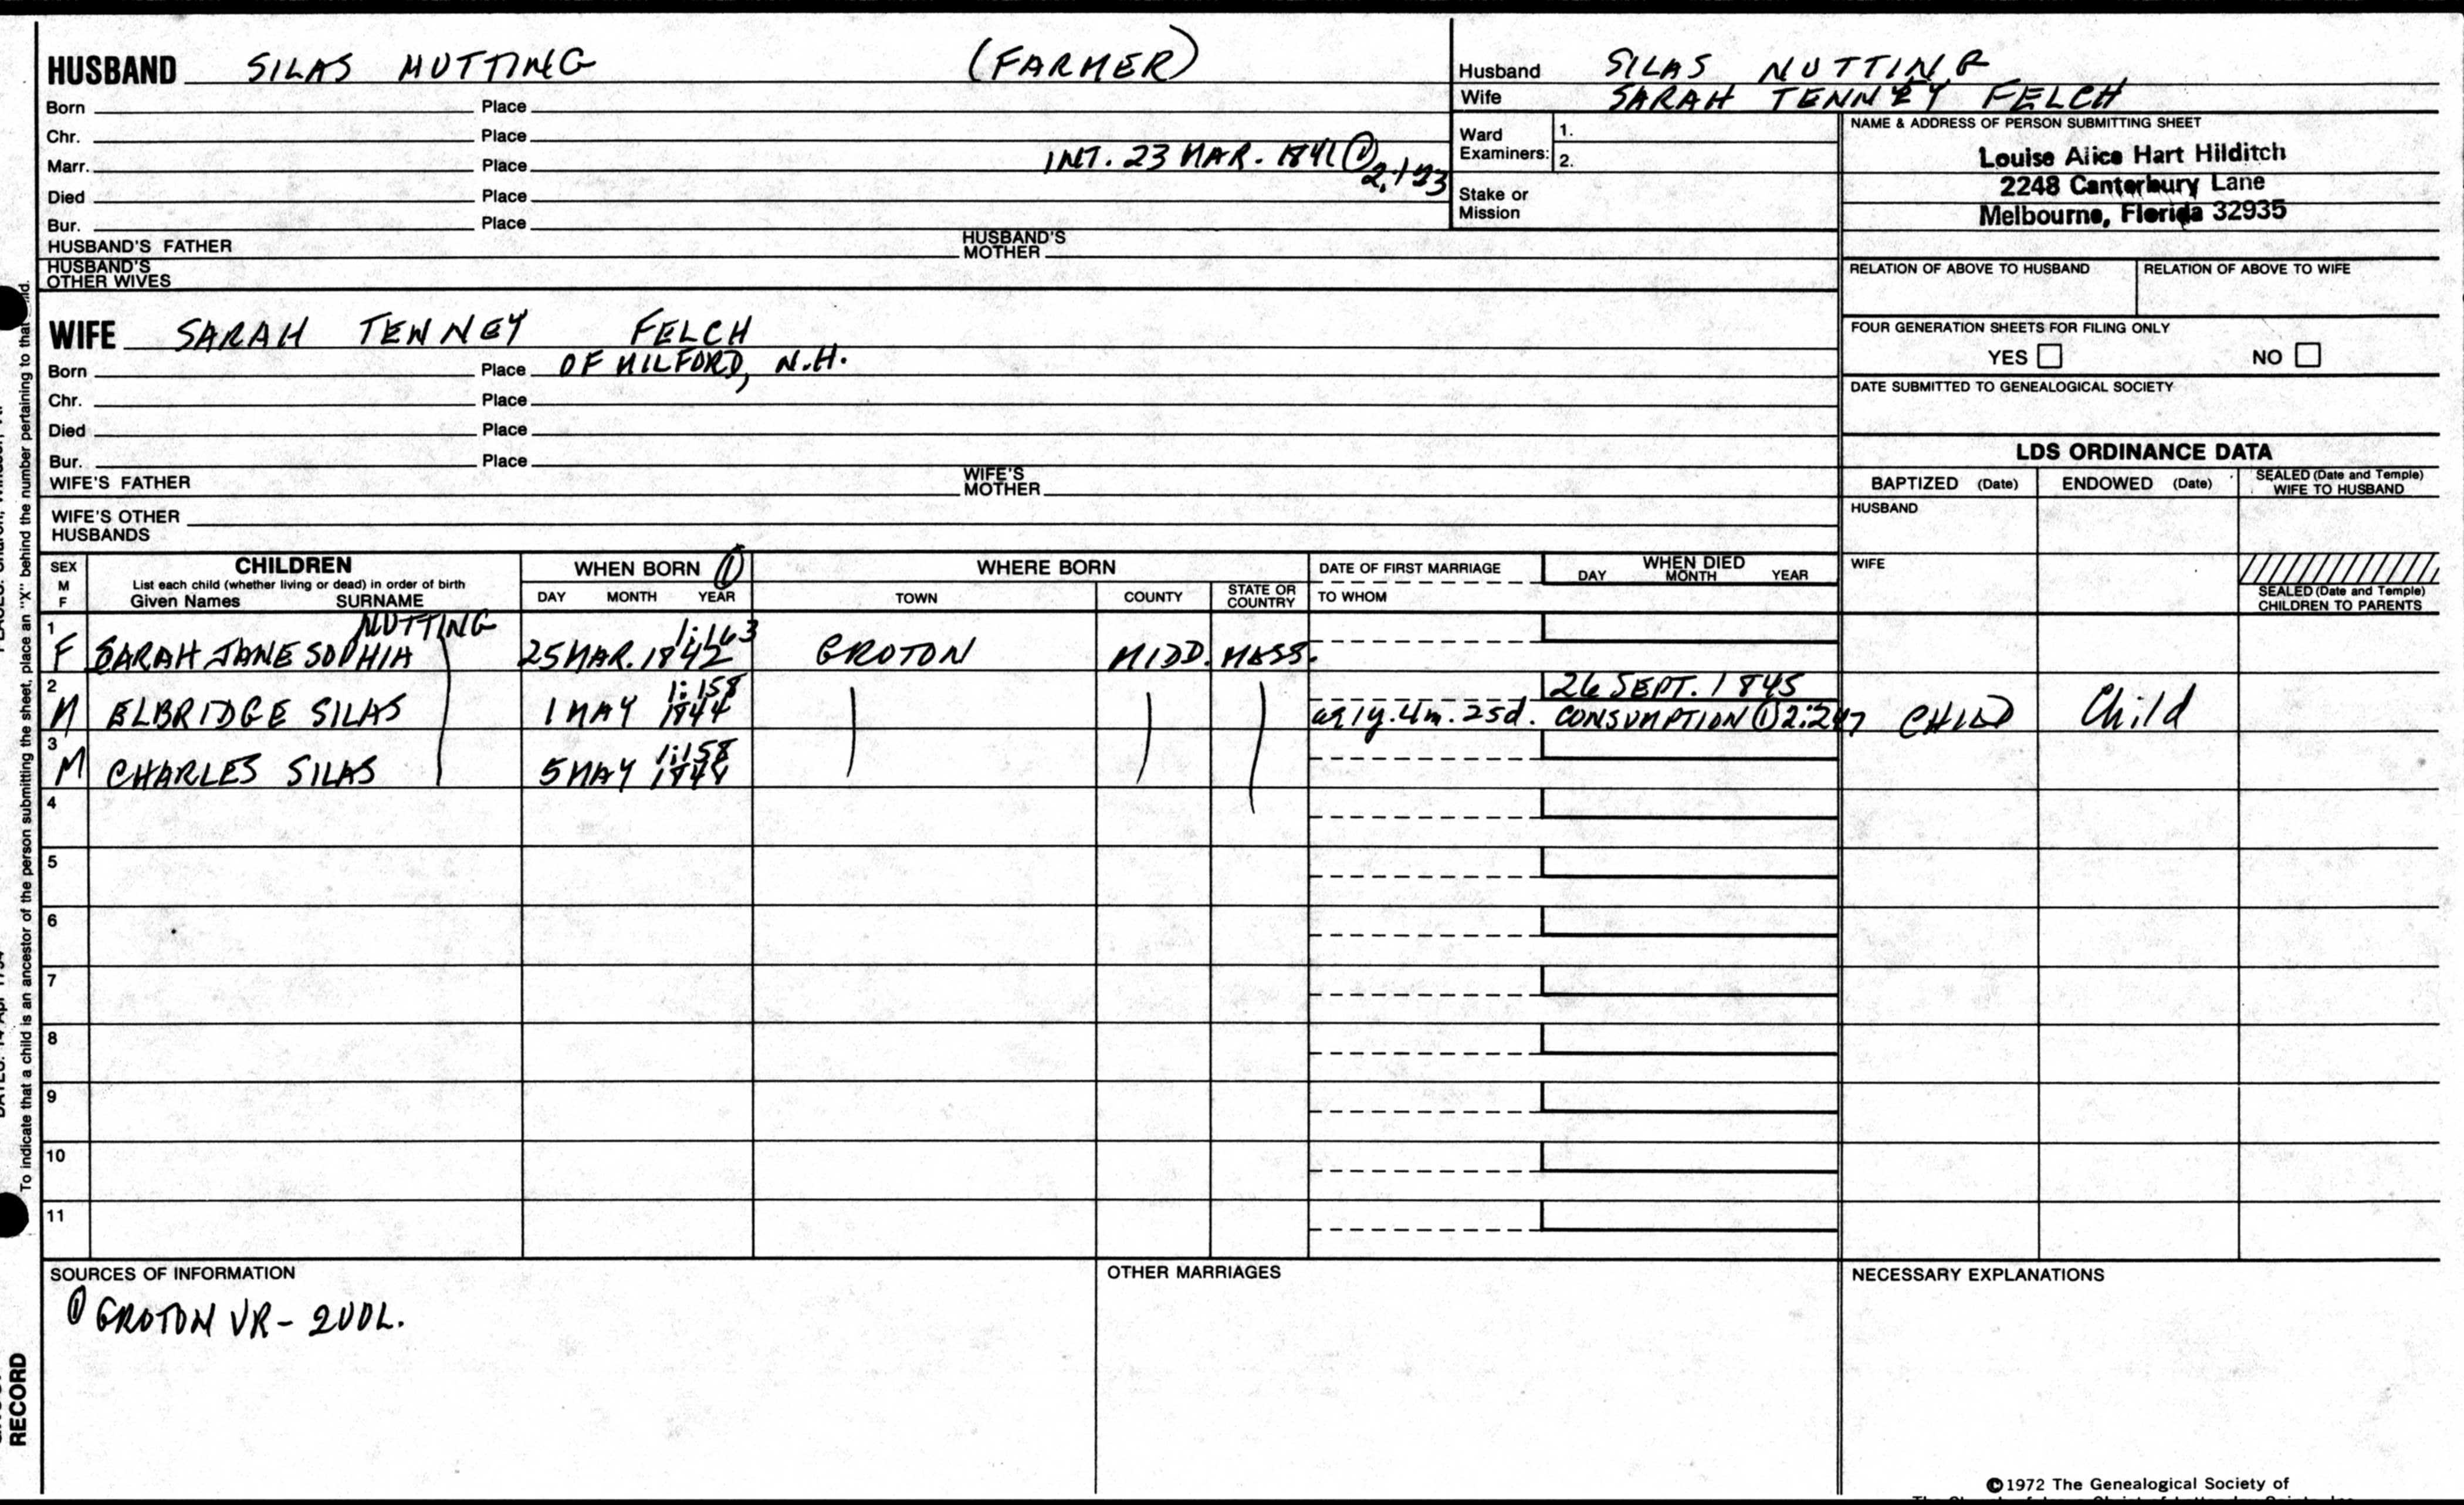 HUSBAND SILAS NUTTING (FARMER)
Born Place
Chr. Place
Marr. Place INT. 23 MAR. 1841 ①
Died Place
Bur. Place
HUSBAND'S FATHER HUSBAND'S MOTHER
HUSBAND'S OTHER WIVES
Husband SILAS NUTTING
Wife SARAH TENNEY FELCH
Ward Examiners: 1.
2.
Stake or Mission
NAME & ADDRESS OF PERSON SUBMITTING SHEET
Louise Alice Hart Hilditch
2248 Canterbury Lane
Melbourne, Florida 32935
RELATION OF ABOVE TO HUSBAND RELATION OF ABOVE TO WIFE
FOUR GENERATION SHEETS FOR FILING ONLY
YES NO
DATE SUBMITTED TO GENEALOGICAL SOCIETY
WIFE SARAH TENNEY FELCH
Born Place OF MILFORD, N.H.
Chr. Place
Died Place
Bur. Place
WIFE'S FATHER WIFE'S MOTHER
WIFE'S OTHER HUSBANDS
LDS ORDINANCE DATA
BAPTIZED (Date) ENDOWED (Date) SEALED (Date and Temple) WIFE TO HUSBAND
HUSBAND
WIFE
SEALED (Date and Temple) CHILDREN TO PARENTS
SEX M F CHILDREN WHEN BORN ① WHERE BORN DATE OF FIRST MARRIAGE WHEN DIED
List each child (whether living or dead) in order of birth
Given Names SURNAME DAY MONTH YEAR TOWN COUNTY STATE OR COUNTRY TO WHOM DAY MONTH YEAR
NUTTING 1:163
1 F SARAH JANE SOPHIA 25 MAR. 1842 GROTON MIDD. MASS.
1:158 26 SEPT. 1845
2 M ELBRIDGE SILAS 1 MAY 1844 ag 1y. 4m. 25d. CONSUMPTION ① 2:247 CHILD Child
1:158
3 M CHARLES SILAS 5 MAY
4
5
6
7
8
9
10
11
SOURCES OF INFORMATION OTHER MARRIAGES NECESSARY EXPLANATIONS
① GROTON VR - 2 VOL.
©1972 The Genealogical Society of
To indicate that a child is an ancestor of the person submitting the sheet, place an "X" behind the number pertaining to that
RECORD